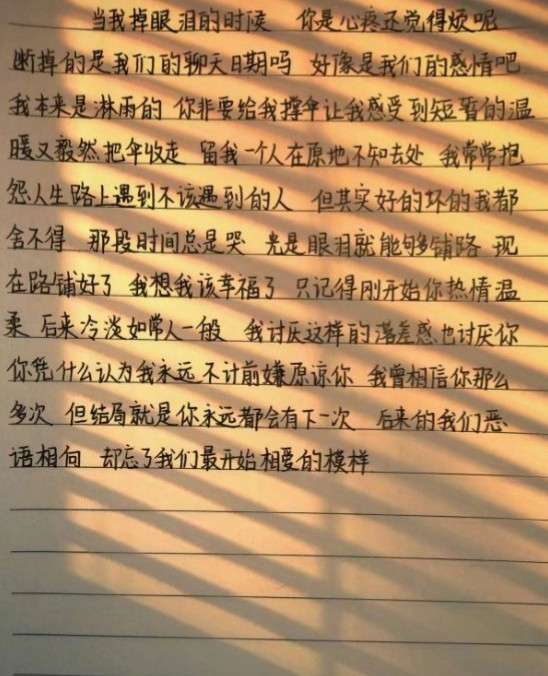 当我掉眼泪的时候 你是心疼还觉得烦呢
断掉的是我们的聊天日期吗 好像是我们的感情吧
我本来是淋雨的 你非要给我撑伞让我感受到短暂的温
暖又毅然把伞收走 留我一个人在原地不知去处 我常常抱
怨人生路上遇到不该遇到的人 但其实好的坏的我都
舍不得 那段时间总是哭 光是眼泪就能够铺路 现
在路铺好了 我想我该幸福了 只记得刚开始你热情温
柔 后来冷淡如常人一般 我讨厌这样的落差感也讨厌你
你凭什么认为我永远不计前嫌原谅你 我曾相信你那么
多次 但结局就是你永远都会有下一次 后来的我们恶
语相向 却忘了我们最开始相爱的模样